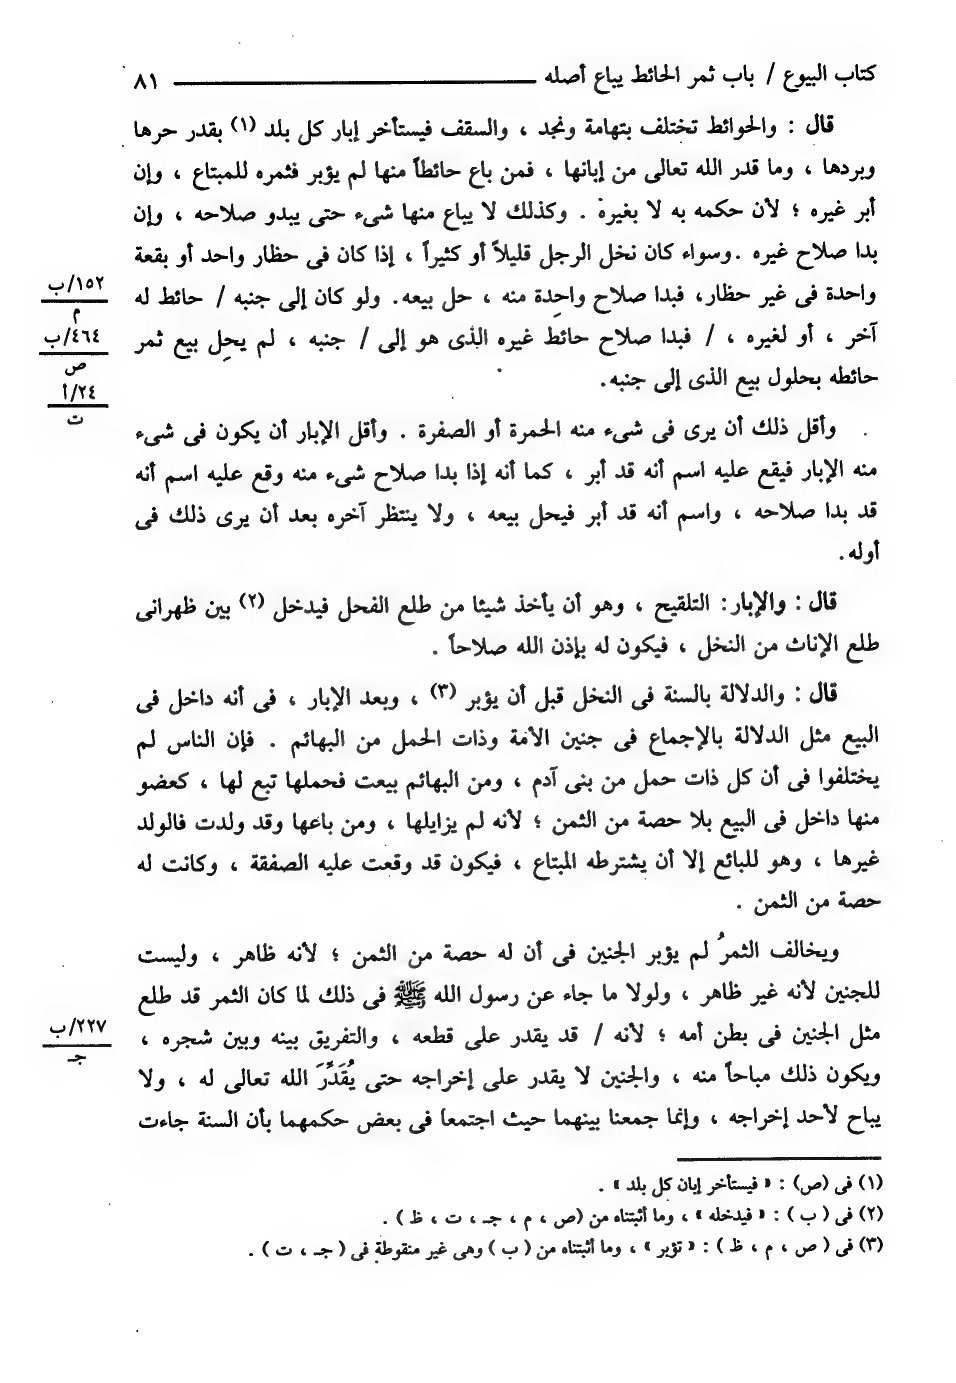 كتاب البيوع / باب ثمر الحائط يباع أصله ٨١
قال : والحوائط تختلف بتهامة ونجد ، والسقف فيستأخر إبار كل بلد (١) بقدر حرها
وبردها ، وما قدر الله تعالى من إبانها ، فمن باع حائطاً منها لم يؤبر فثمره للمبتاع ، وإن
أبر غيره ؛ لأن حكمه به لا بغيره . وكذلك لا يباع منها شىء حتى يبدو صلاحه ، وإن
بدا صلاح غيره .وسواء كان نخل الرجل قليلاً أو كثيراً ، إذا كان فى حظار واحد أو بقعة
واحدة فى غير حظار، فبدا صلاح واحدة منه ، حل بيعه. ولو كان إلى جنبه / حائط له
آخر ، أو لغيره ، / فبدا صلاح حائط غيره الذى هو إلى / جنبه ، لم يحل بيع ثمر
حائطه بحلول بيع الذى إلى جنبه.
١٥٢/ب
م
٤٦٤/ب
ص
٢٤/أ
ت
وأقل ذلك أن يرى فى شىء منه الحمرة أو الصفرة . وأقل الإبار أن يكون فى شىء
منه الإبار فيقع عليه اسم أنه قد أبر ، كما أنه إذا بدا صلاح شىء منه وقع عليه اسم أنه
قد بدا صلاحه ، واسم أنه قد أبر فيحل بيعه ، ولا ينتظر آخره بعد أن يرى ذلك فى
أوله.
قال : والإبار: التلقيح ، وهو أن يأخذ شيئا من طلع الفحل فيدخل (٢) بين ظهرانى
طلع الإناث من النخل ، فيكون له بإذن الله صلاحاً .
قال : والدلالة بالسنة فى النخل قبل أن يؤبر (٣) ، وبعد الإبار ، فى أنه داخل فى
البيع مثل الدلالة بالإجماع فى جنين الأمة وذات الحمل من البهائم . فإن الناس لم
يختلفوا فى أن كل ذات حمل من بنى آدم ، ومن البهائم بيعت فحملها تبع لها ، كعضو
منها داخل فى البيع بلا حصة من الثمن ؛ لأنه لم يزايلها ، ومن باعها وقد ولدت فالولد
غيرها ، وهو للبائع إلا أن يشترطه المبتاع ، فيكون قد وقعت عليه الصفقة ، وكانت له
حصة من الثمن .
ويخالف الثمرُ لم يؤبر الجنين فى أن له حصة من الثمن ؛ لأنه ظاهر ، وليست
للجنين لأنه غير ظاهر ، ولولا ما جاء عن رسول الله ﷺ فى ذلك لما كان الثمر قد طلع
مثل الجنين فى بطن أمه ؛ لأنه / قد يقدر على قطعه ، والتفريق بينه وبين شجره ،
ويكون ذلك مباحاً منه ، والجنين لا يقدر على إخراجه حتى يُقَدِّرَ الله تعالى له ، ولا
يباح لأحد إخراجه ، وإنما جمعنا بينهما حيث اجتمعا فى بعض حكمهما بأن السنة جاءت
٢٢٧/ب
جـ
(١) فى (ص) : « فيستأخر إبان كل بلد » .
(٢) فى ( ب ) : « فيدخله » ، وما أثبتناه من (ص ، م ، جـ ، ت ، ظ ) .
(٣) فى ( ص ، م ، ظ ) : « تؤبر » ، وما أثبتناه من ( ب ) وهى غير منقوطة فى ( جـ ، ت ) .